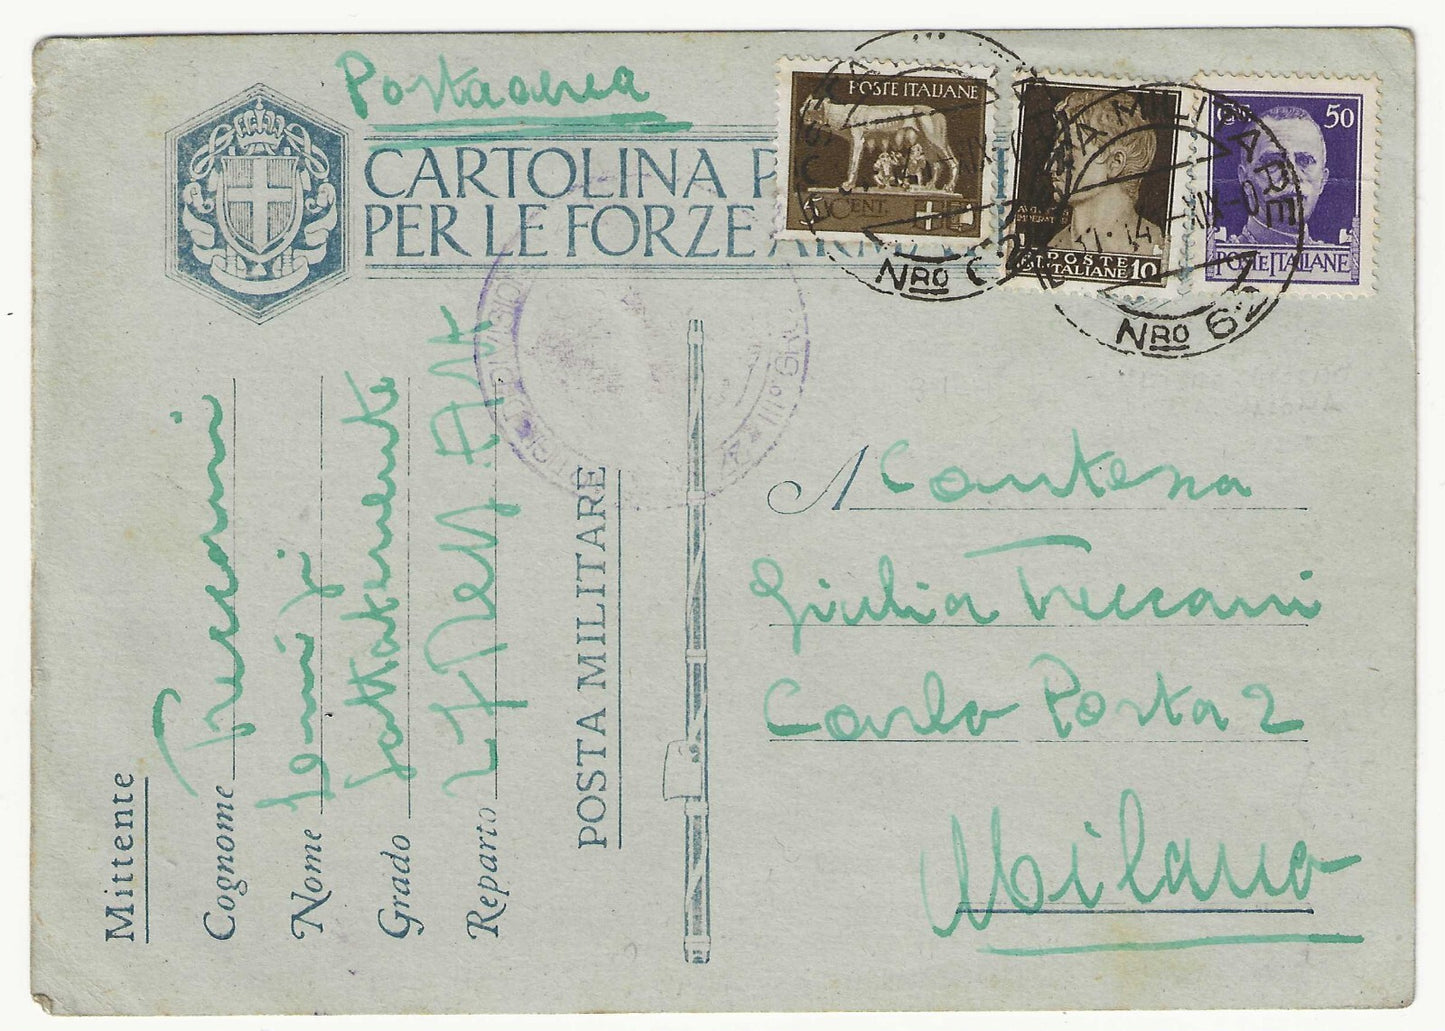 Posta aerea
CARTOLINA P
PER LE FORZE ARM
POSTE ITALIANE
5 CENT.
POSTE
ITALIANE 10
50
POSTE ITALIANE
NRO
MILITARE
NRO 62
Mittente
Cognome Treccani
Nome
Grado Sottotenente
Reparto
POSTA MILITARE
A Contessa
Giulia Treccani
Carlo Porta 2
Milano